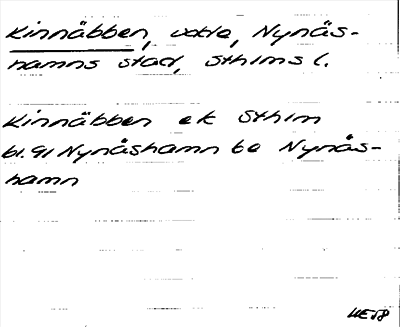 Kinnäbben, udde, Nynäs-
hamns stad, Sthlms l.
Kinnäbben ek Sthlm
bl. 91 Nynäshamn be Nynäs-
hamn